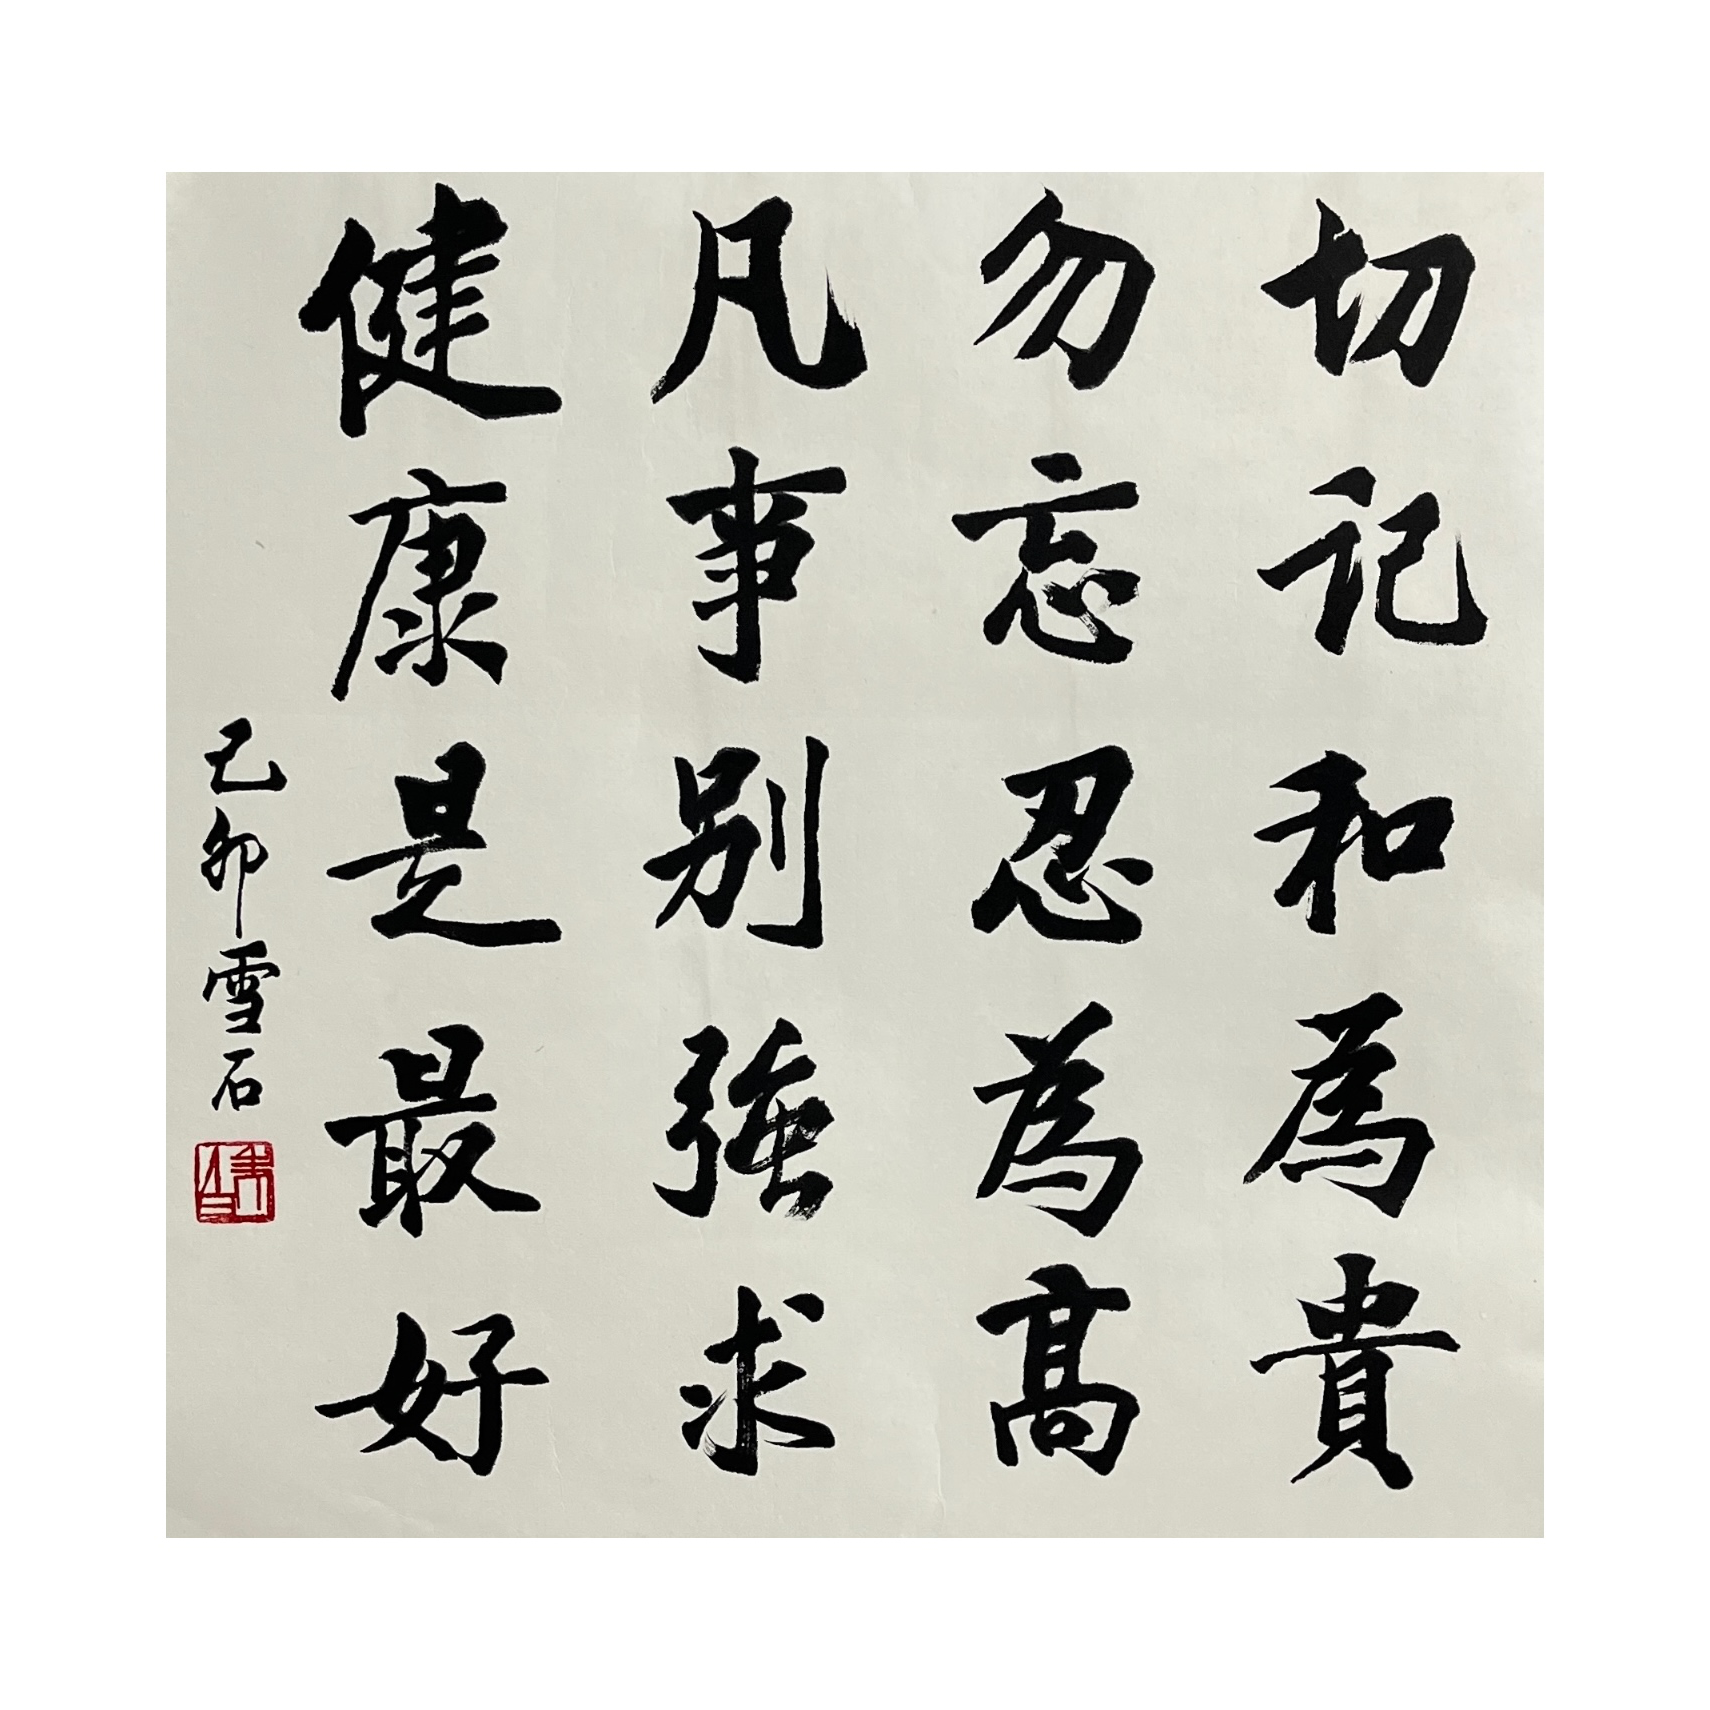 切记和為貴
勿忘忍為高
凡事别強求
健康是最好
己卯雪石